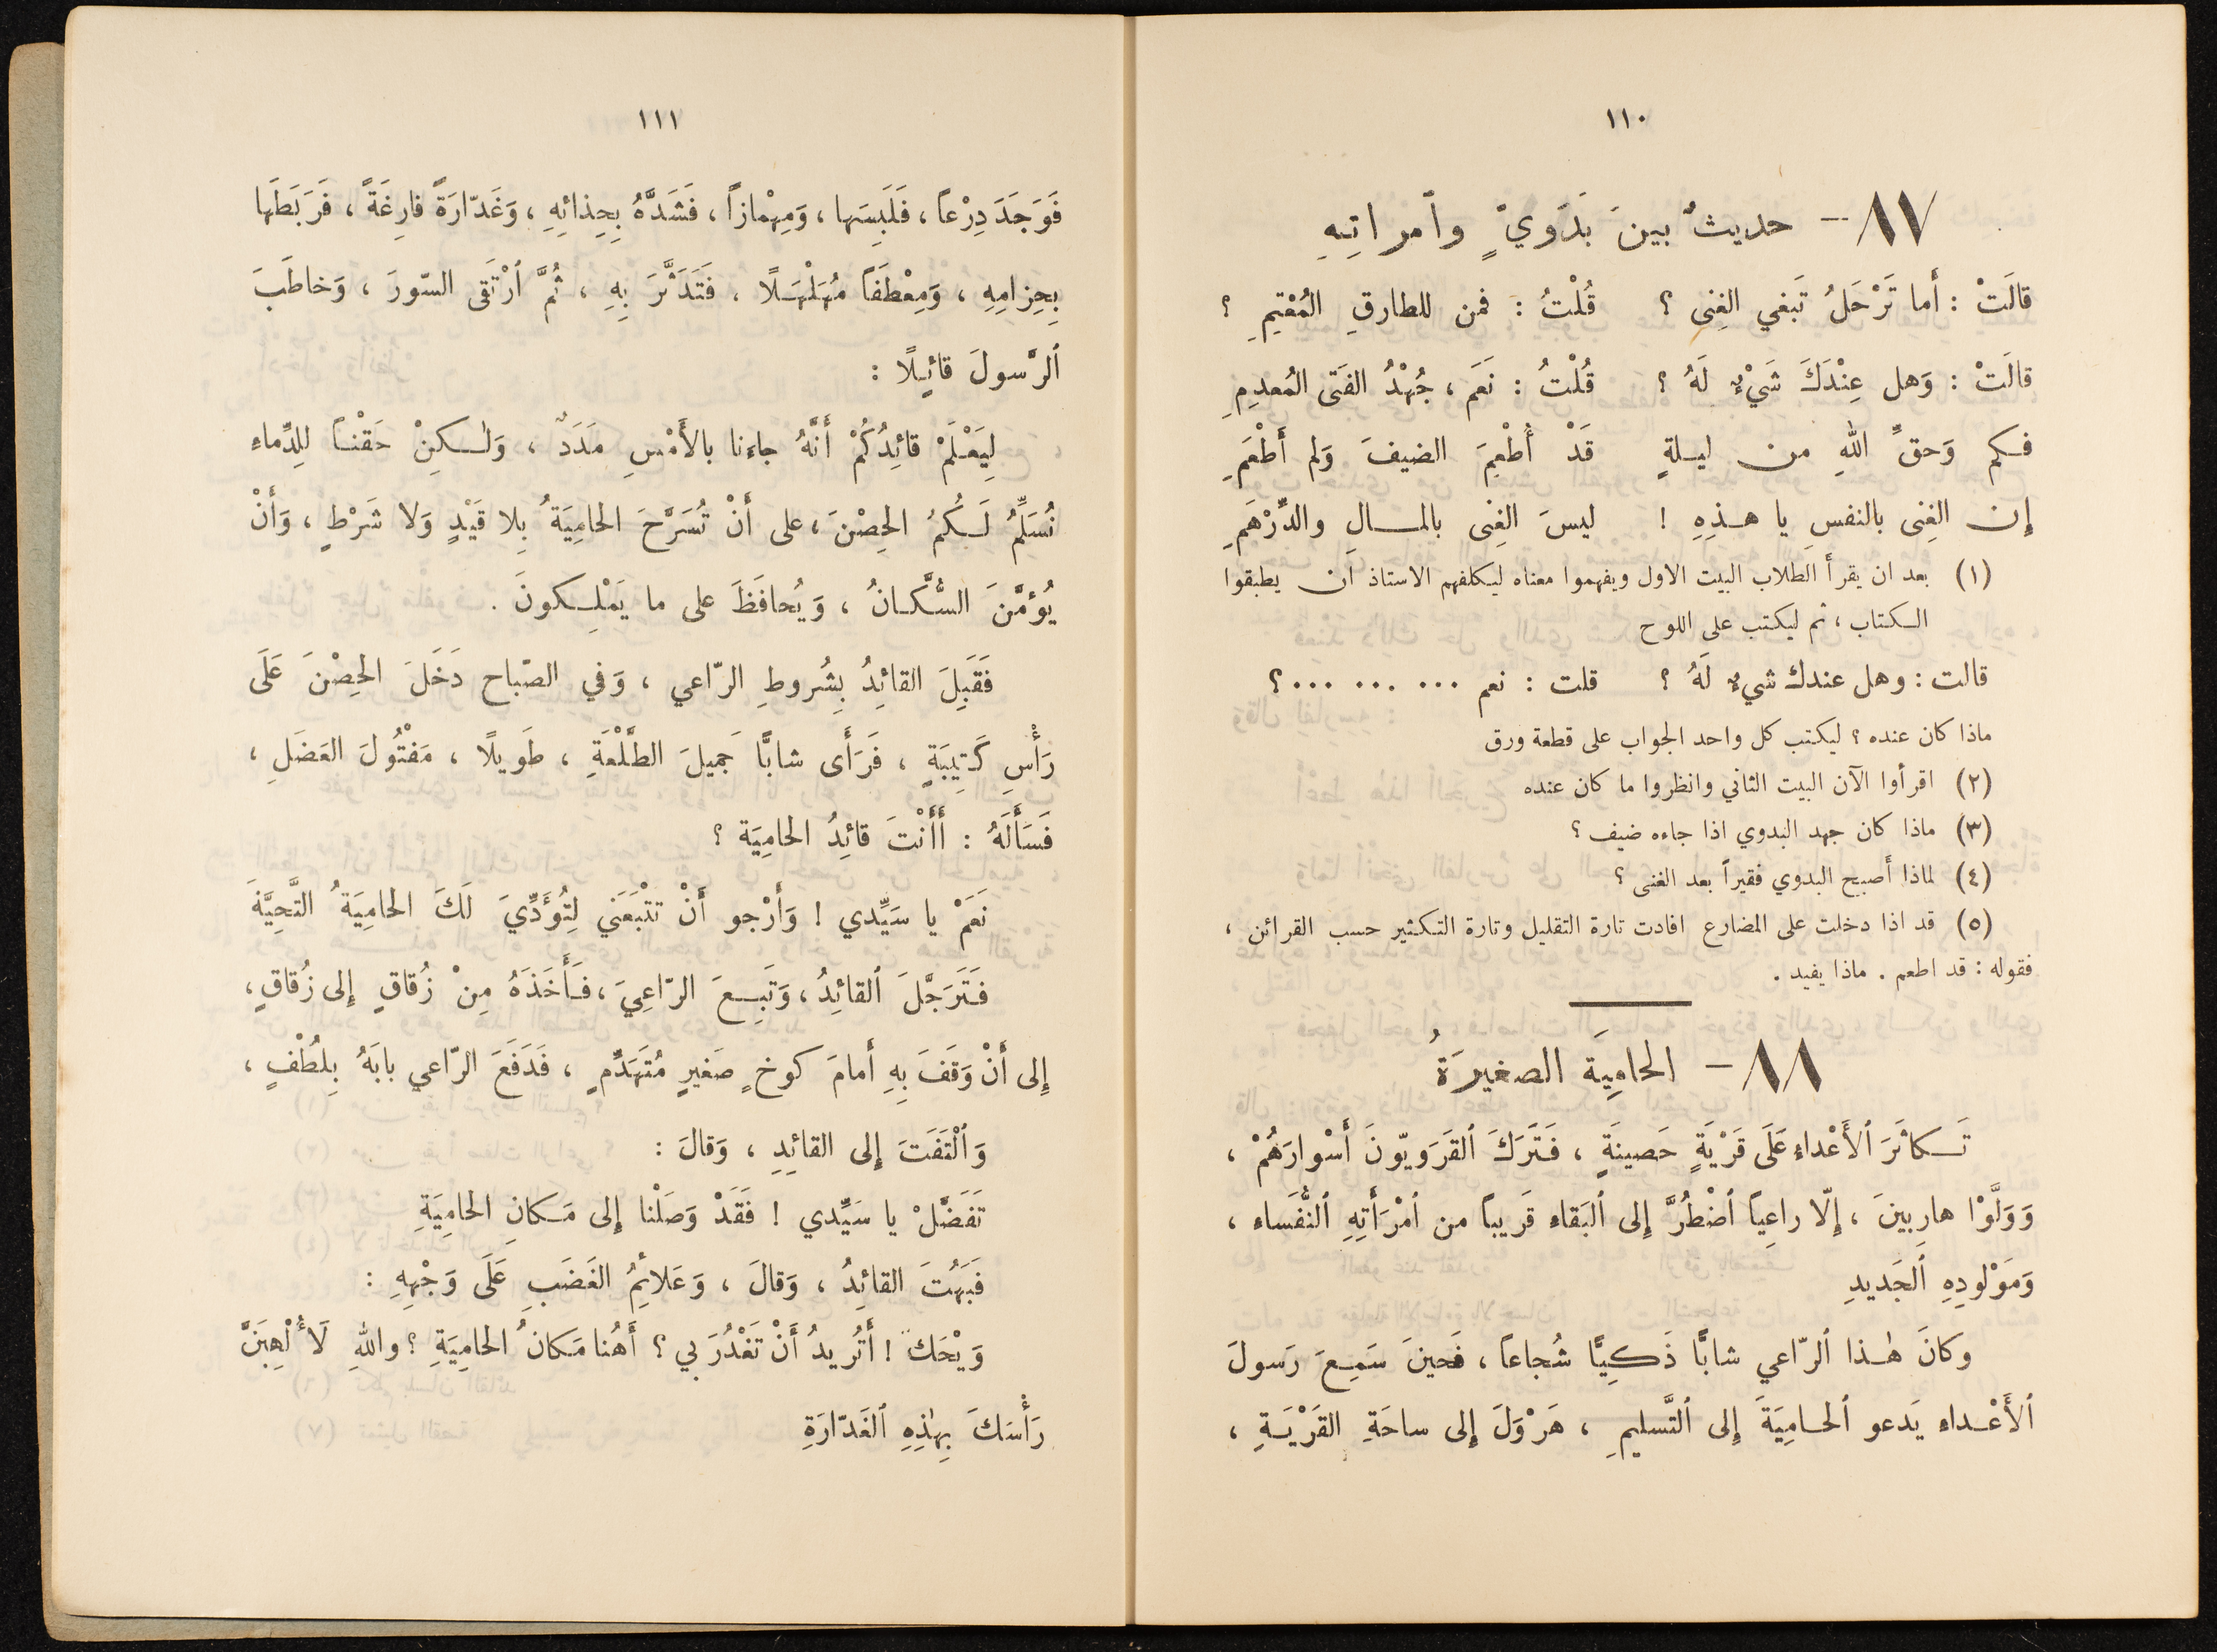 ١١٠
٨٧ – حديثٌ بينَ بَدَويٍّ وٱمراتِهِ
قالَتْ : أَما تَرْحَلُ تَبغي الغِنى ؟ قُلْتُ : فمن للطارقِ المُعْتِمِ ؟
قالَتْ : وَهل عِنْدَكَ شَيْءٌ لَهُ ؟ قُلْتُ : نَعَم ، جُهْدُ الفَتى المُعدِمِ
فكم وَحقِّ اللهِ من ليلةٍ قَدْ أُطْعِمَ الضيفَ وَلم أَطْعَمِ
إن الغِنى بالنفسِ يا هذِهِ ! ليسَ الغِنى بالمالِ والدِّرْهَمِ
(١) بعد ان يقرأ الطلاب البيت الاول ويفهموا معناه ليكلفهم الاستاذ أن يطبقوا
الكتاب ، ثم ليكتب على اللوح
قالت : وهل عندك شيءٌ لَهُ ؟ قلت : نعم ... ... ... ؟
ماذا كان عنده ؟ ليكتب كل واحد الجواب على قطعة ورق
(٢) اقرأوا الآن البيت الثاني وانظروا ما كان عنده
(٣) ماذا كان جهد البدوي اذا جاءه ضيف ؟
(٤) لماذا أَصبح البدوي فقيراً بعد الغنى ؟
(٥) قد اذا دخلت على المضارع افادت تارة التقليل وتارة التكثير حسب القرائن ،
فقوله : قد اطعم . ماذا يفيد .
٨٨ – الحامِيَة الصغيرَةُ
تَكاثَرَ ٱلأَعْداء عَلَى قَرْيَةٍ حَصينَةٍ ، فَتَرَكَ ٱلقَرَويّونَ أَسْوارَهُمْ ،
وَوَلَّوْا هارِبينَ ، إِلّا راعِياً ٱضْطُرَّ إِلى ٱلبَقاء قَريباً من ٱمْرَأَتِهِ ٱلنُّفَساء ،
وَمَوْلودِهِ ٱلجَديدِ
وكانَ هٰذا ٱلرّاعي شابًّا ذَكِيًّا شُجاعاً ، فَحينَ سَمِعَ رَسولَ
ٱلأَعْداء يَدعو ٱلحامِيَةَ إِلى ٱلتَّسليمِ ، هَرْوَلَ إِلى ساحَةِ القَرْيَةِ ،
١١١
فَوَجَدَ دِرْعاً ، فَلَبِسَها ، وَمِهْمازاً ، فَشَدَّهُ بِحِذائِهِ ، وَغَدّارَةً فارِغَةً ، فَرَبَطَها
بِحِزامِهِ ، وَمِعْطَفاً مُهَلْهَلًا ، فَتَدَثَّرَ بِهِ ، ثُمَّ ٱرْتَقى السّورَ ، وَخاطَبَ
ٱلرَّسولَ قائِلًا :
لِيَعْلَمْ قائِدُكُمْ أَنَّهُ جاءنا بالأَمْسِ مَدَدٌ ، وَلكِنْ حَقْناً لِلدِّماءِ
نُسَلِّمُ لَكُمُ الحِصْنَ ، على أَنْ تُسَرَّحَ الحامِيَةُ بِلا قَيْدٍ وَلا شَرْطٍ ، وَأَنْ
يُؤمَّنَ السُّكّانُ ، وَيُحافَظَ على ما يَمْلِكونَ .
فَقَبِلَ القائِدُ بِشُروطِ الرّاعي ، وَفي الصّباح دَخَلَ الحِصْنَ عَلَى
رَأْسِ كَتِيبَةٍ ، فَرَأَى شابًّا جَميلَ الطَّلْعَةِ ، طَويلًا ، مَفْتُولَ العَضَلِ ،
فَسَأَلَهُ : أَأَنْتَ قائِدُ الحامِيَة ؟
نَعَمْ يا سَيِّدي ! وَأَرْجو أَنْ تتْبَعَني لِتُؤَدِّيَ لَكَ الحامِيَةُ التَّحِيَّةَ
فَتَرَجَّلَ ٱلقائِدُ ، وَتَبِعَ الرّاعِيَ ، فَأَخَذَهُ مِنْ زُقاقٍ إِلى زُقاقٍ ،
إِلى أَنْ وَقَفَ بِهِ أَمامَ كوخٍ صَغيرٍ مُتَهَدِّمٍ ، فَدَفَعَ الرّاعي بابَهُ بِلُطْفٍ ،
وَٱلْتَفَتَ إِلى القائِدِ ، وَقالَ :
تَفَضَّلْ يا سَيِّدي ! فَقَدْ وَصَلْنا إِلى مَكانِ الحامِيَةِ
فَبَهُتَ القائِدُ ، وَقالَ ، وَعَلائِمُ الغَضَبِ عَلَى وَجْهِهِ :
وَيْحَكَ ! أَتُريدُ أَنْ تَغْدُرَ بي ؟ أَهُنا مَكانُ الحامِيَةِ ؟ واللهِ لَأُلْهِبَنَّ
رَأْسَكَ بِهٰذِهِ ٱلغَدّارَةِ